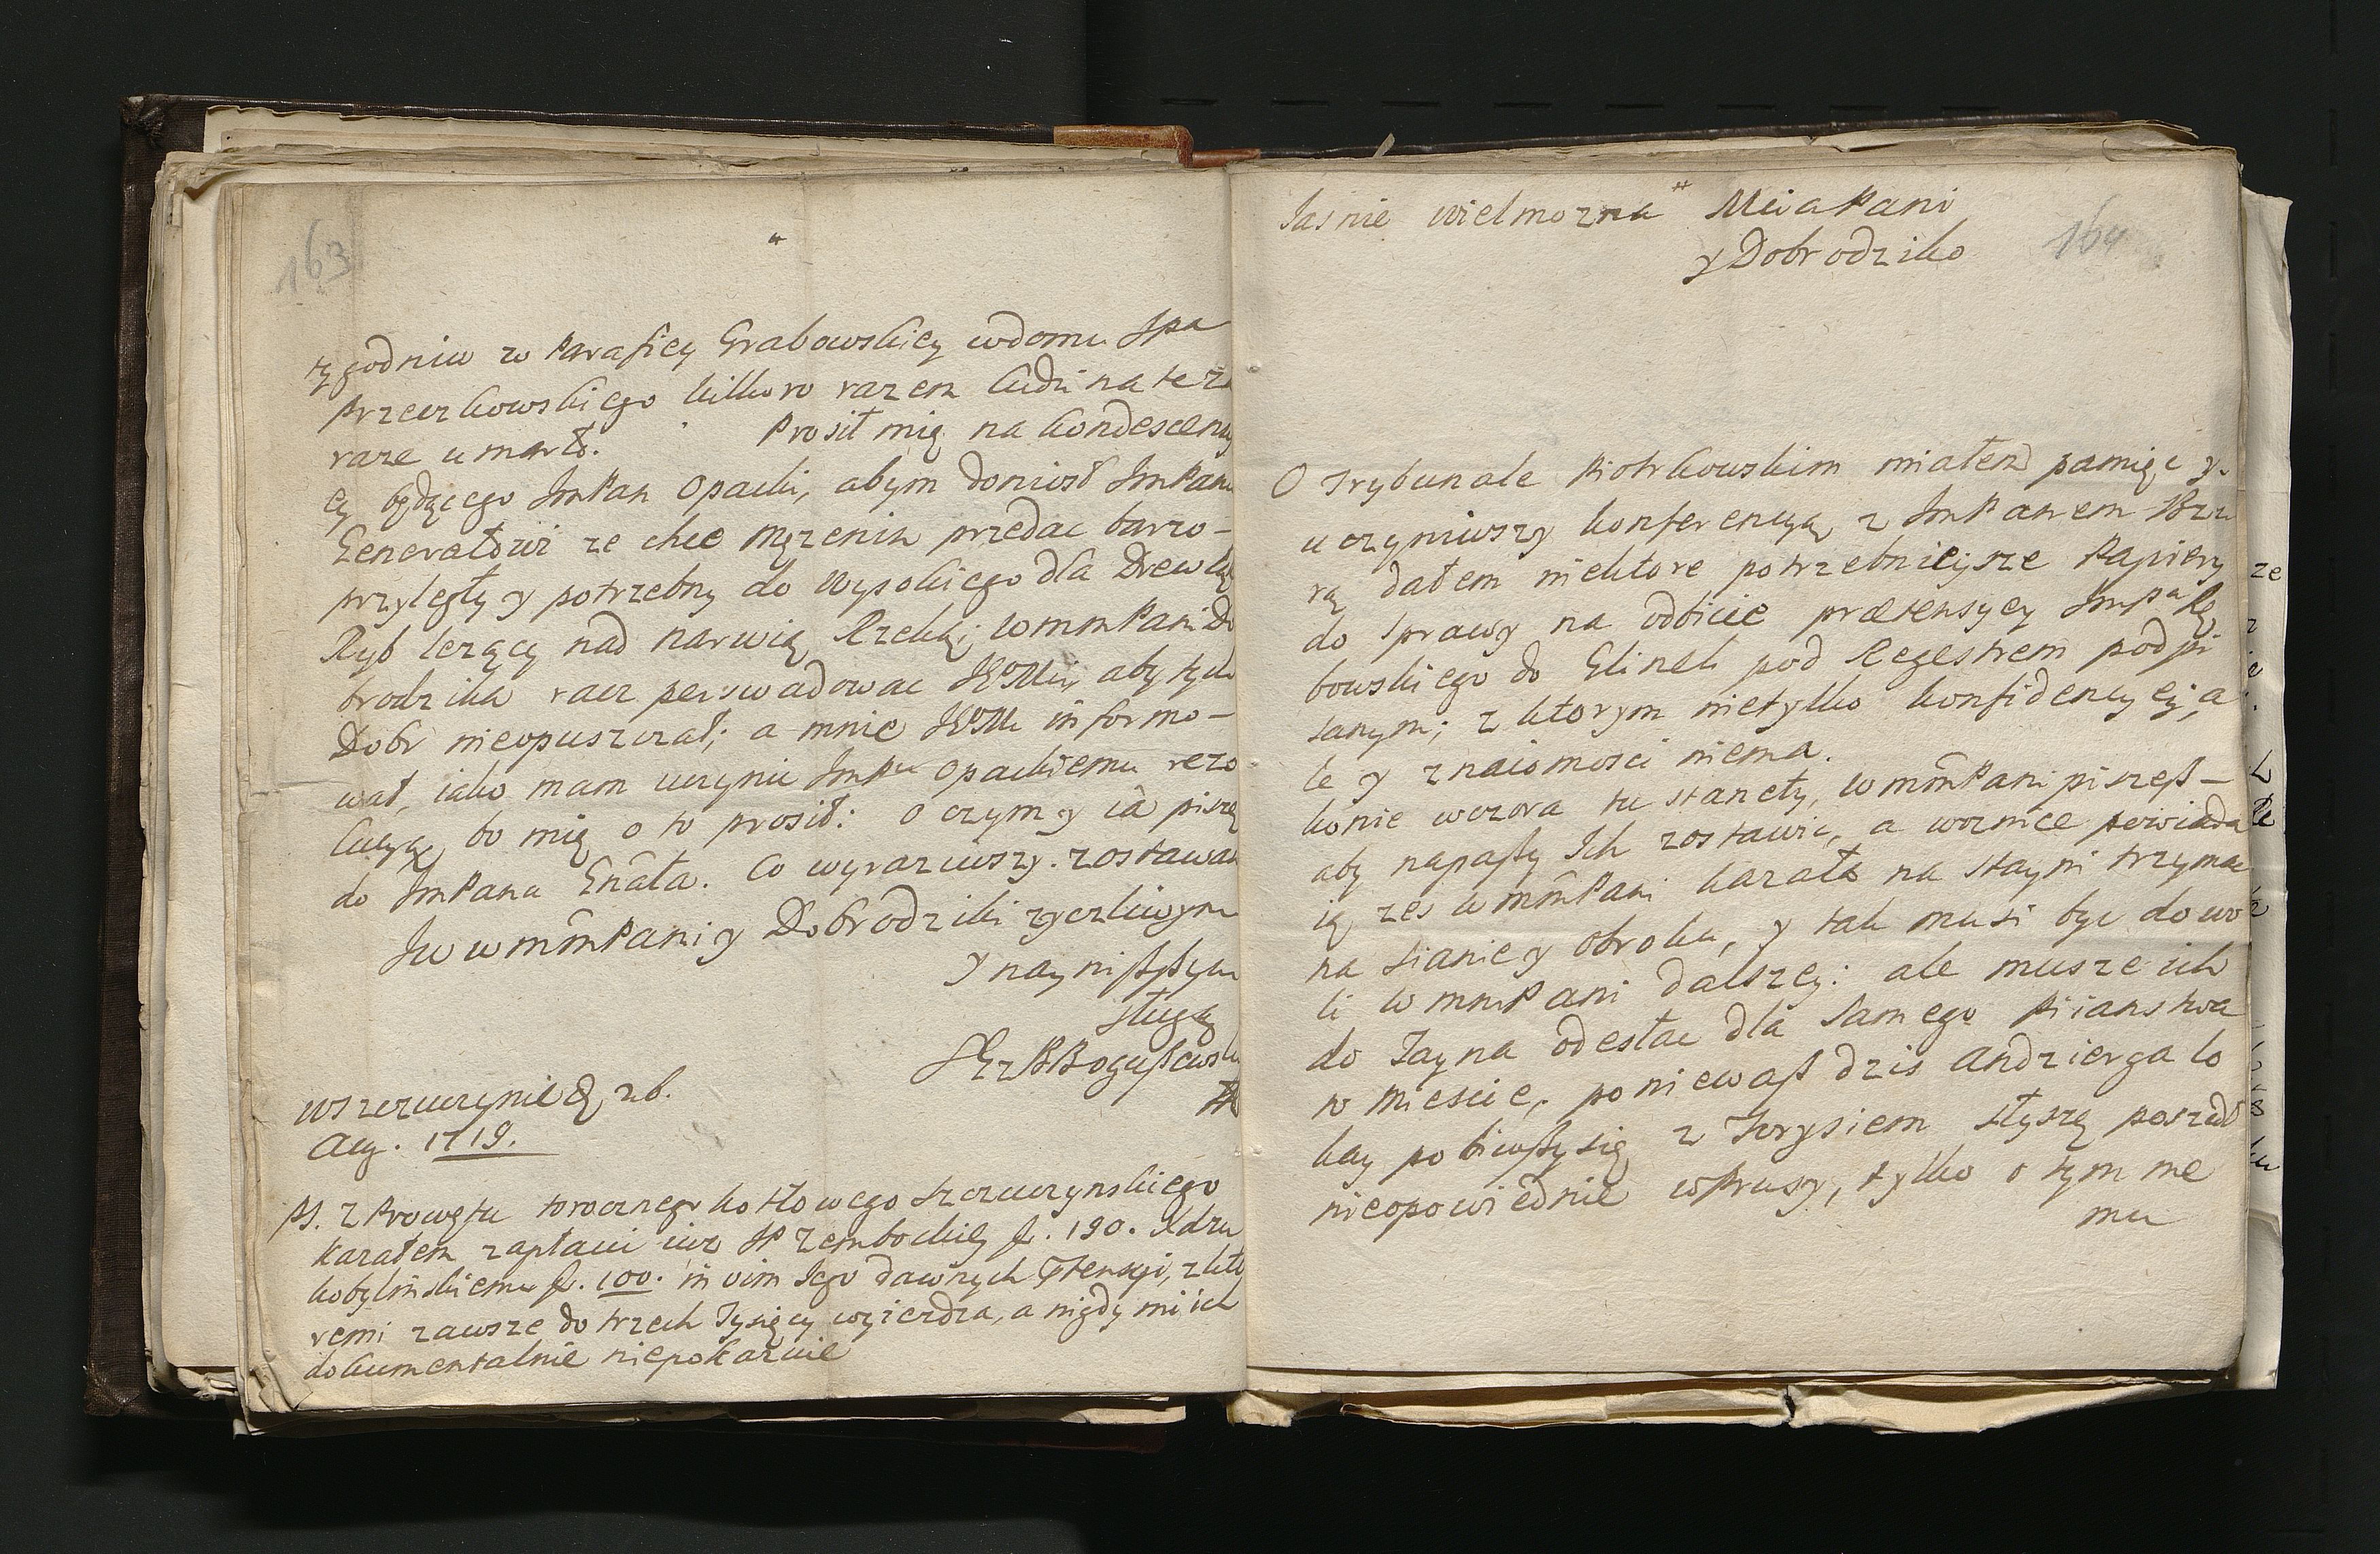 163
tygodniu w Parafiey Grabowskiey w domu Jpa
Przeczkowskiego kilkoro razem ludzi na te
raze umarło. Prosił mię na kondescency
ey będącego ImPan Opacki, abym doniosł ImPanu
Generałowi ze chce Męzenin przedac barzo-
przyległy y potrzebny do Wysokiego dla Drew
Ryb lezący nad Narwią Rzeką; WmmPani Do
brodzika racz perswadowac JEMci aby tych
Dobr nieopuszczał; a mnie informo-
wał, iako mam uczynic ImPu Opackiemu rezo
lucyą bo mię o to prosił: o czym y ia piszę
do ImPana Gnała. Co wyraziwszy. zostawam
Jw wmmPani y Dobrodziki zyczliwym
y nayniszszym
sługą
Bogusławski
w Szczuczynie 26.
Aug. 1719.
Ps. Z Prowętu torocznego kotłowego szczuczynskiego
Kazałem zapłacic iuz Zembockiey fl. 190. Xdzu
kobylinskiemu fl. 100. in vim Jego dawnych ptensyi, z kto
remi zawsze do trzech Tysięcy wyiezdza, a nigdy mi ich
dokumentalnie niepokazuie
164
Jasnie wielmozna Mcia Pani
y Dobrodziko
O Trybunale Piotrkowskim miałem pamięc y.
uczyniwszy konferencyą z ImPanem Brzo
rą dałem niektore potrzebnieysze Papiery
do sprawy na odbicie prætensyey Impa Rę
bowskiego do Glinek pod Regestrem podpi
sanym; z ktorym nietylko konfidencyey, a
le y znaiomosci niema.
konie wczora tu stanęły, WmmPani piszesz-
aby napaszy Ich zostawic, a woznice powiada
ią zes WmmPani kazała na stayni trzymac
na sianie y obroku, y tak musi byc do wo
li WmmPani dalszey: ale musze ich
do Jayna odesłac dla samego piianstwa
w miescie, poniewasz dzis Andziega lo
kay pobiwszy się z Jurysiem słyszę poszedł
nieopowiednie w Prusy, tylko o tym me
mu